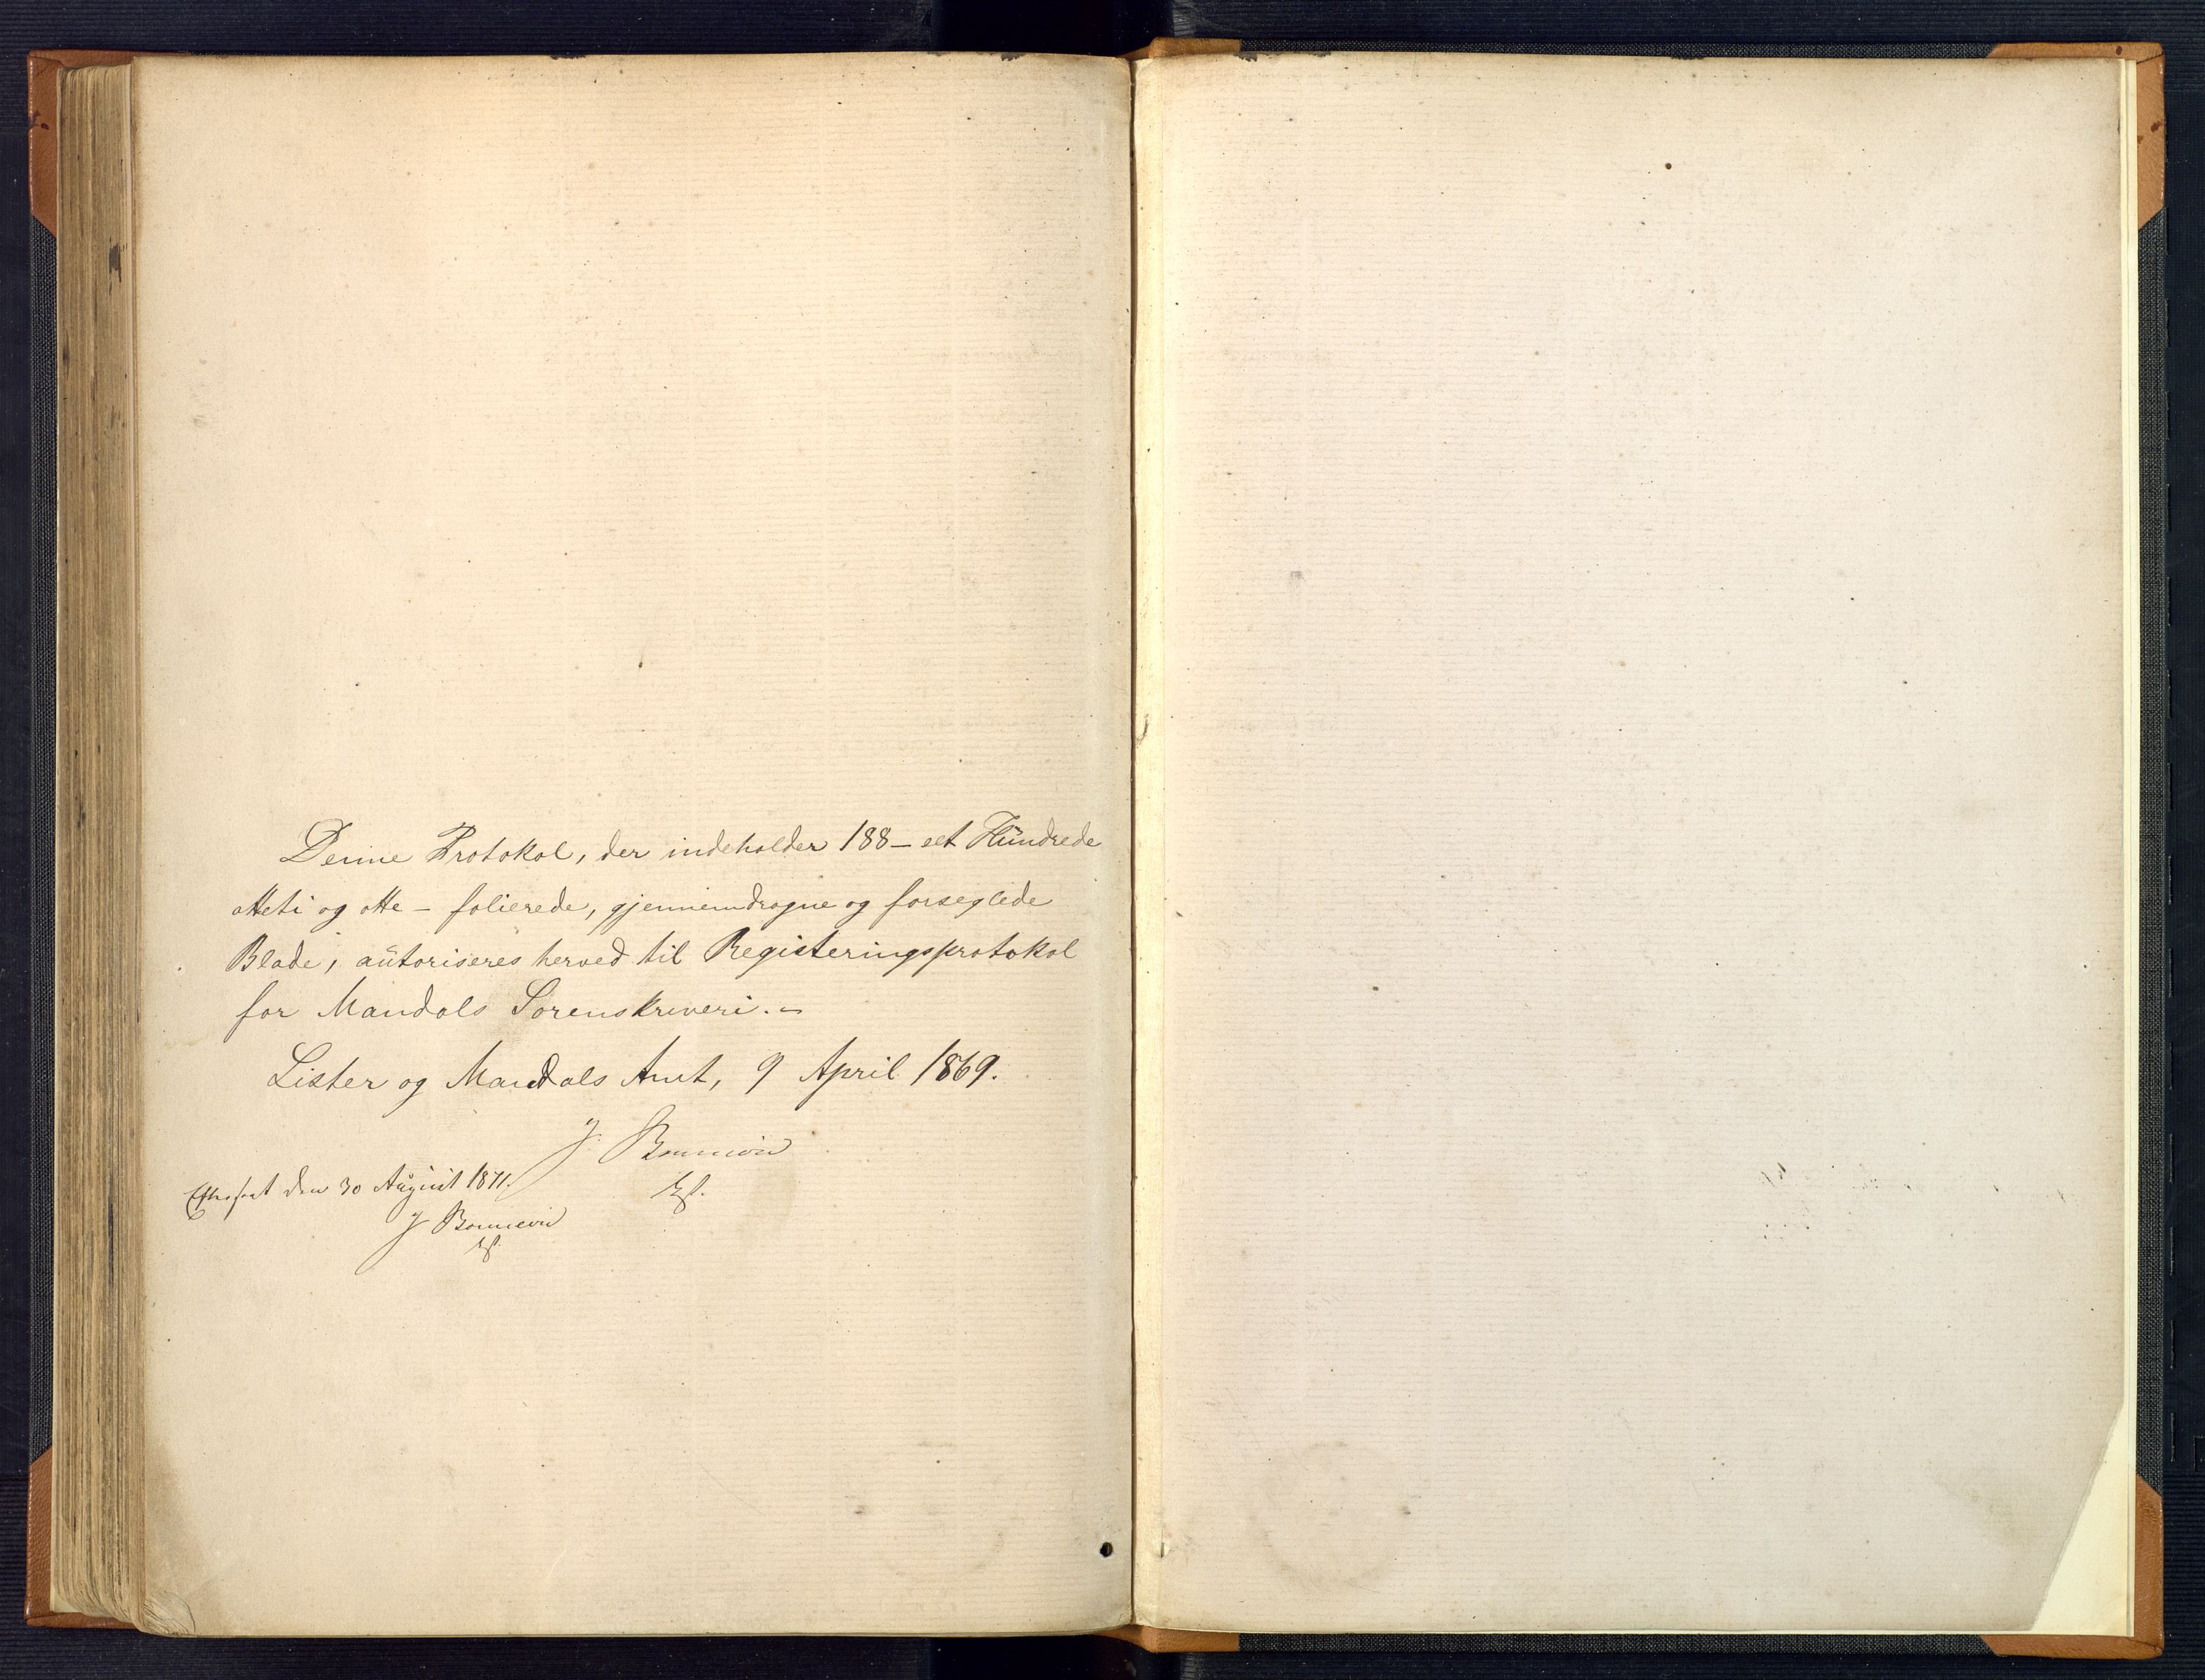 Denne Protokol, der indeholder 188 – eet Hundrede
otteti og otte – folierede, gjennemdragne og forseglede
Blade, autoriseres herved til Registeringsprotokol
for Mandals Sorenskriveri. –
Lister og Mandals Amt, 9 April 1869.
J Bonnevie
Efterseet den 30 August 1871.
J Bonnevie